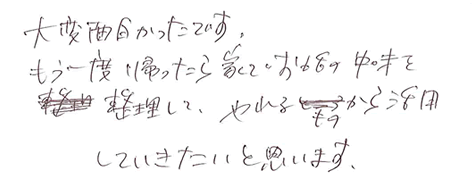 大変面白かったです。
もう一度帰ったら家でおもの中味を
整理して、やれるものから活用
していきたいと思います。